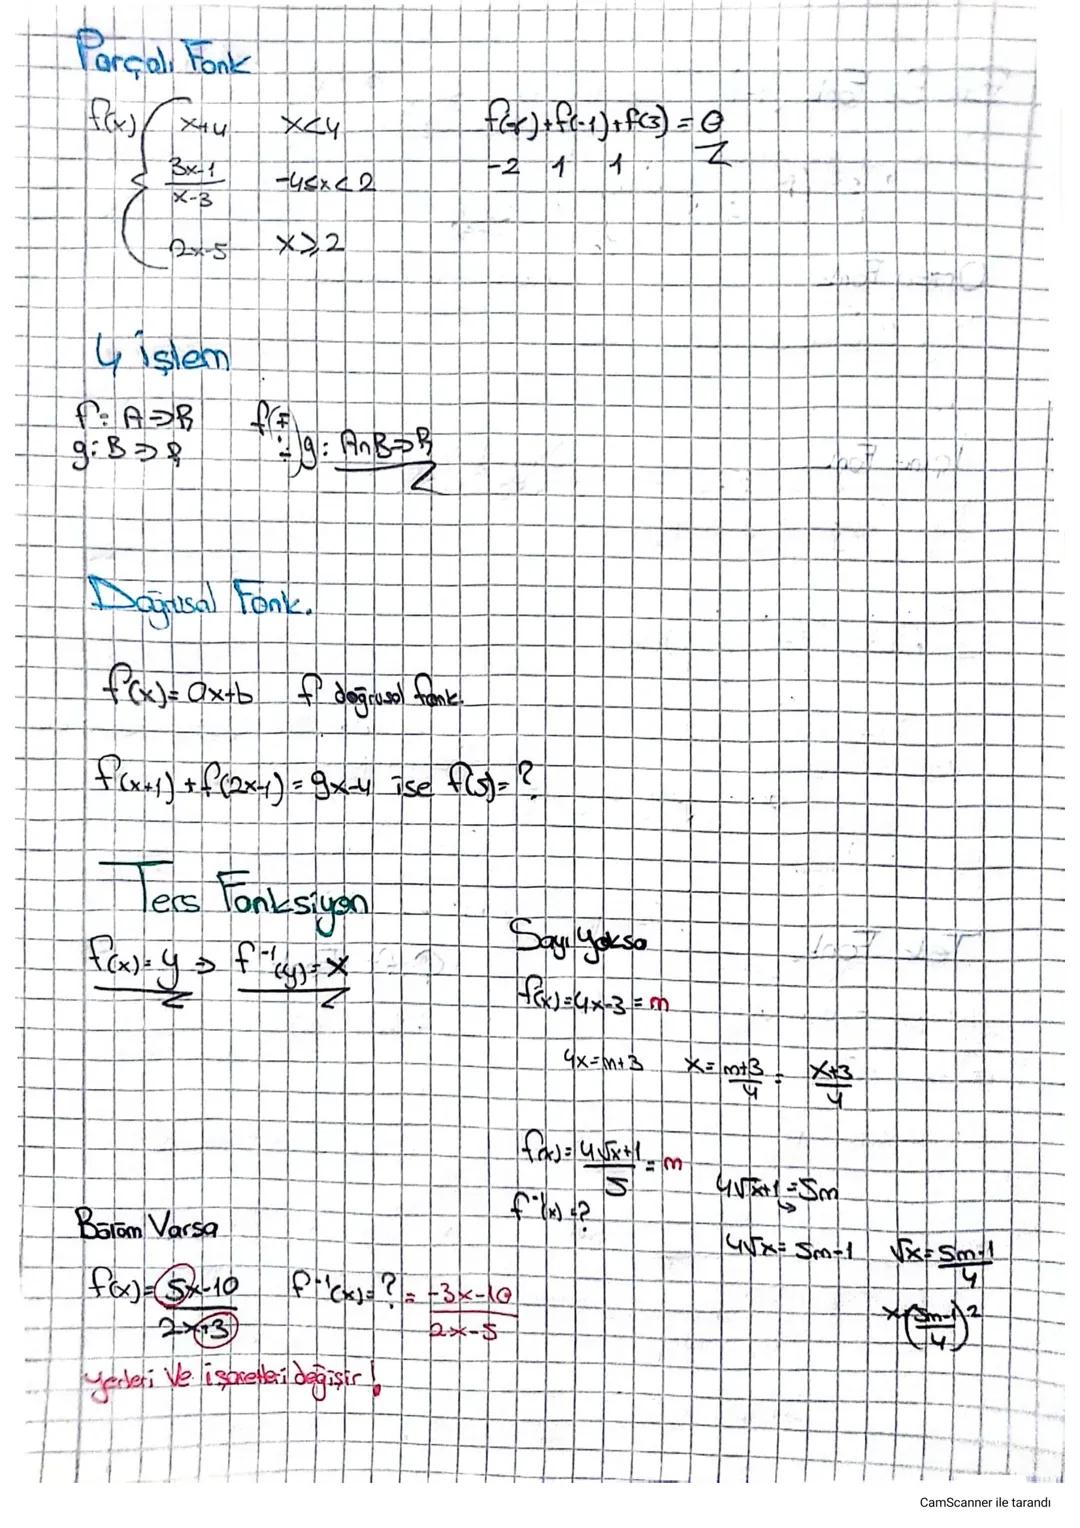 Parçalı Fonk
f(x) x+4 x<4 f(-x)+f(-1)+f(3) = 0
-2 1 1
3x-1/x-3 -4≤x<2
2x-5 x≥2
4 işlem
f: A⇒R
g: B⇒R
f(+ - · ÷)g: A∩B⇒R
Doğrusal Fonk.
f(x)=ax+b f doğrusal fonk.
f(x+1)+f(2x-1)=9x-4 ise f(5)=?
Ters Fonksiyon
f(x)=y ⇒ f⁻¹(y)=x
Sayı Yoksa
f(x)=4x-3=m
4x=m+3 x=m+3/4 = x+3/4
f(x)=4√x+1/5=m
f⁻¹(x)=?
4√x+1=5m
4√x=5m-1 √x=5m-1/4
x(5m-1/4)²
Bölüm Varsa
f(x)=5x-10/2x+3 f⁻¹(x)=?=-3x-10/2x-5
yerleri ve işaretleri değişir!
CamScanner ile tarandı